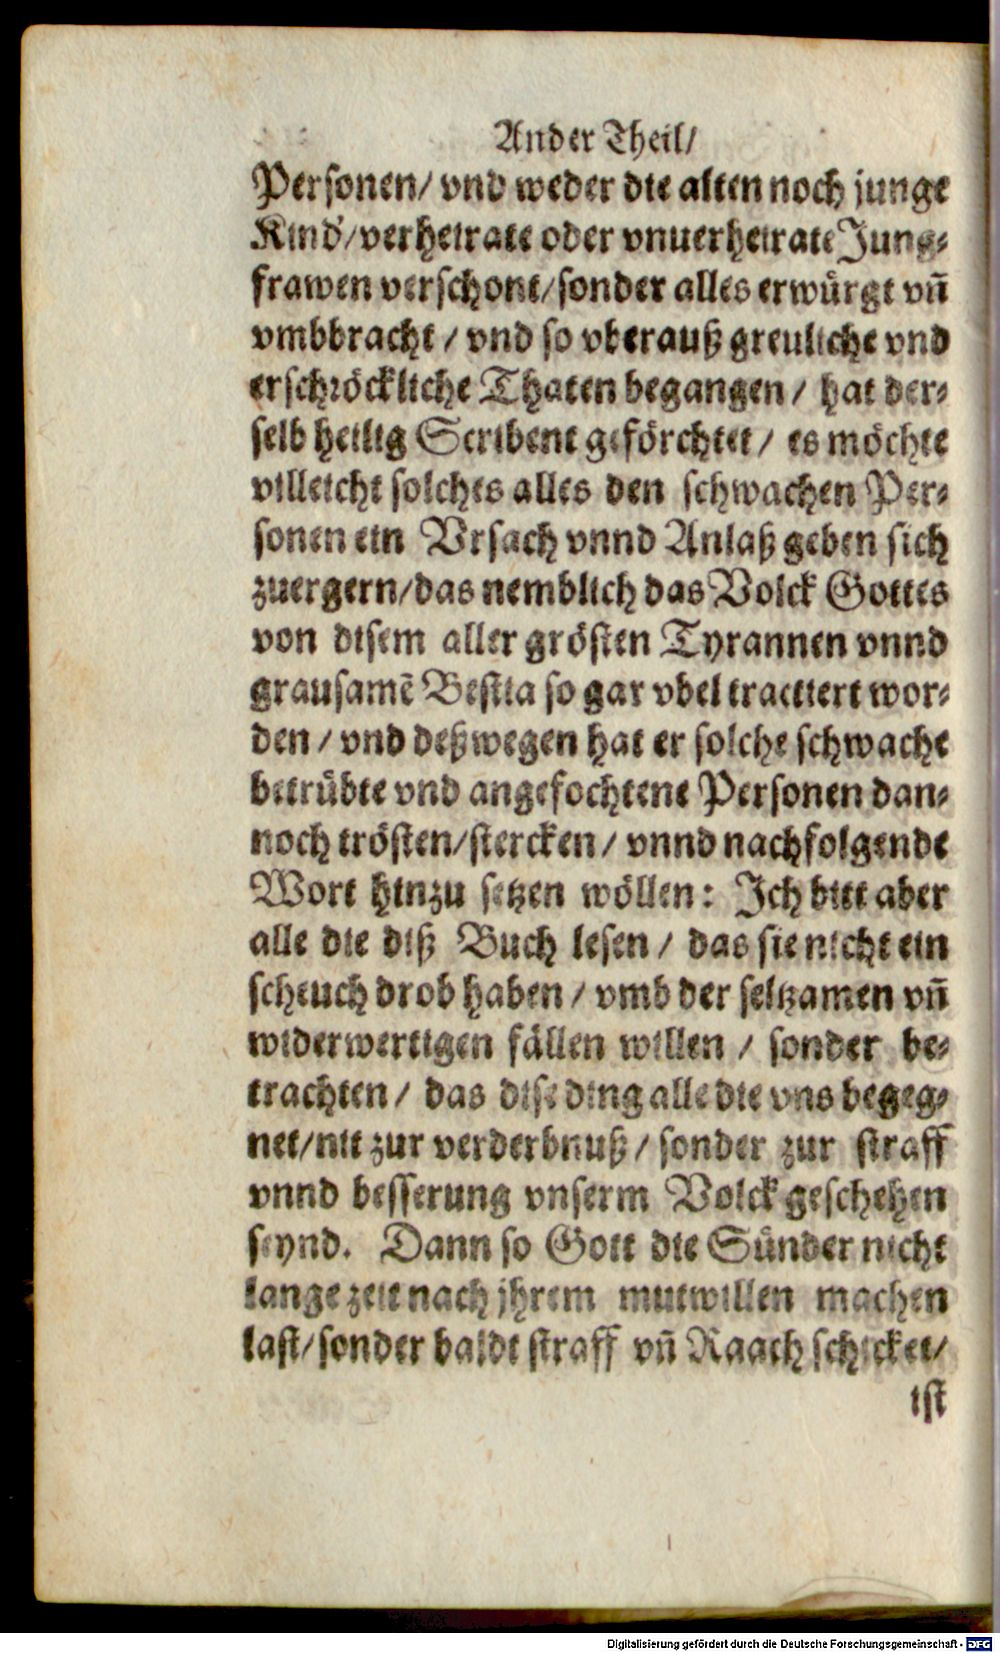 Ander Theil/
Personen/ vnd weder die alten noch junge
Kind/ verheirate oder vnuerheirate Jung⸗
frawen verschont/ sonder alles erwürgt vn̄
vmbbracht / vnd so vberauß greuliche vnd
erschröckliche Thaten begangen / hat der⸗
selb heilig Scribent geförchtet / es möchte
villeicht solches alles den schwachen Per⸗
sonen ein Vrsach vnnd Anlaß geben sich
zuergern/ das nemblich das Volck Gottes
von disem aller grösten Tyrannen vnnd
grausamē Bestia so gar vbel tractiert wor⸗
den / vnd deßwegen hat er solche schwache
betrübte vnd angefochtene Personen dan⸗
noch trösten/ stercken / vnnd nachfolgende
Wort hinzu setzen wöllen: Ich bitt aber
alle die diß Buch lesen / das sie nicht ein
scheuch drob haben / vmb der seltzamen vn̄
widerwertigen fällen willen / sonder be⸗
trachten / das dise ding alle die vns begeg⸗
net/ nit zur verderbnuß / sonder zur straff
vnnd besserung vnserm Volck geschehen
seynd. Dann so Gott die Sünder nicht
lange zeit nach jhrem mutwillen machen
last/ sonder baldt straff vn̄ Raach schicket/
ist
Digitalisierung gefördert durch die Deutsche Forschungsgemeinschaft - DFG